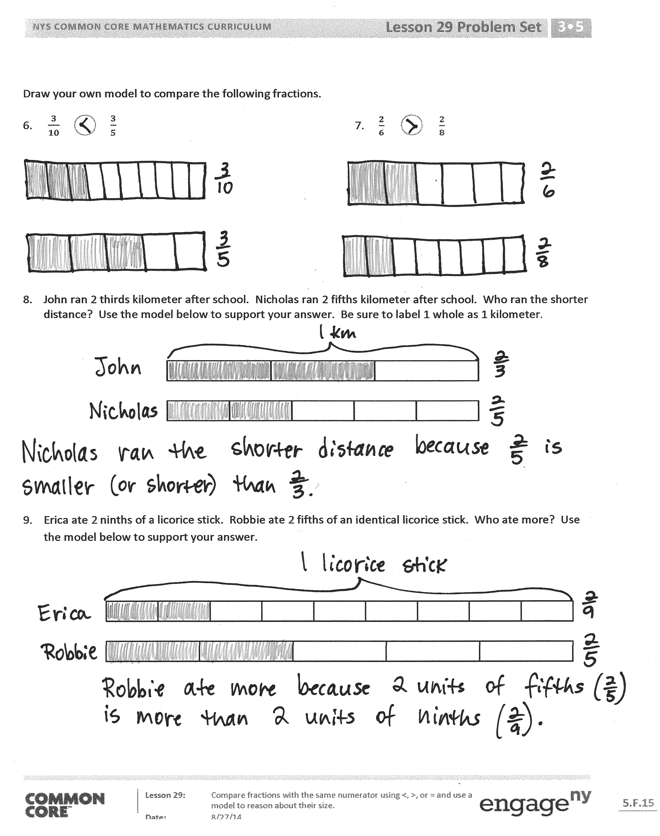 NYS COMMON CORE MATHEMATICS CURRICULUM Lesson 29 Problem Set 3•5
Draw your own model to compare the following fractions.
6. 3/10 < 3/5 7. 2/6 > 2/8
3/10 2/6
3/5 2/8
8. John ran 2 thirds kilometer after school. Nicholas ran 2 fifths kilometer after school. Who ran the shorter
distance? Use the model below to support your answer. Be sure to label 1 whole as 1 kilometer.
1 km
John 2/3
Nicholas 2/5
Nicholas ran the shorter distance because 2/5 is
smaller (or shorter) than 2/3.
9. Erica ate 2 ninths of a licorice stick. Robbie ate 2 fifths of an identical licorice stick. Who ate more? Use
the model below to support your answer.
1 licorice stick
Erica 2/9
Robbie 2/5
Robbie ate more because 2 units of fifths (2/5)
is more than 2 units of ninths (2/9).
COMMON CORE™
Lesson 29: Compare fractions with the same numerator using <, >, or = and use a
model to reason about their size.
Date: 8/27/14
engage ny
5.F.15